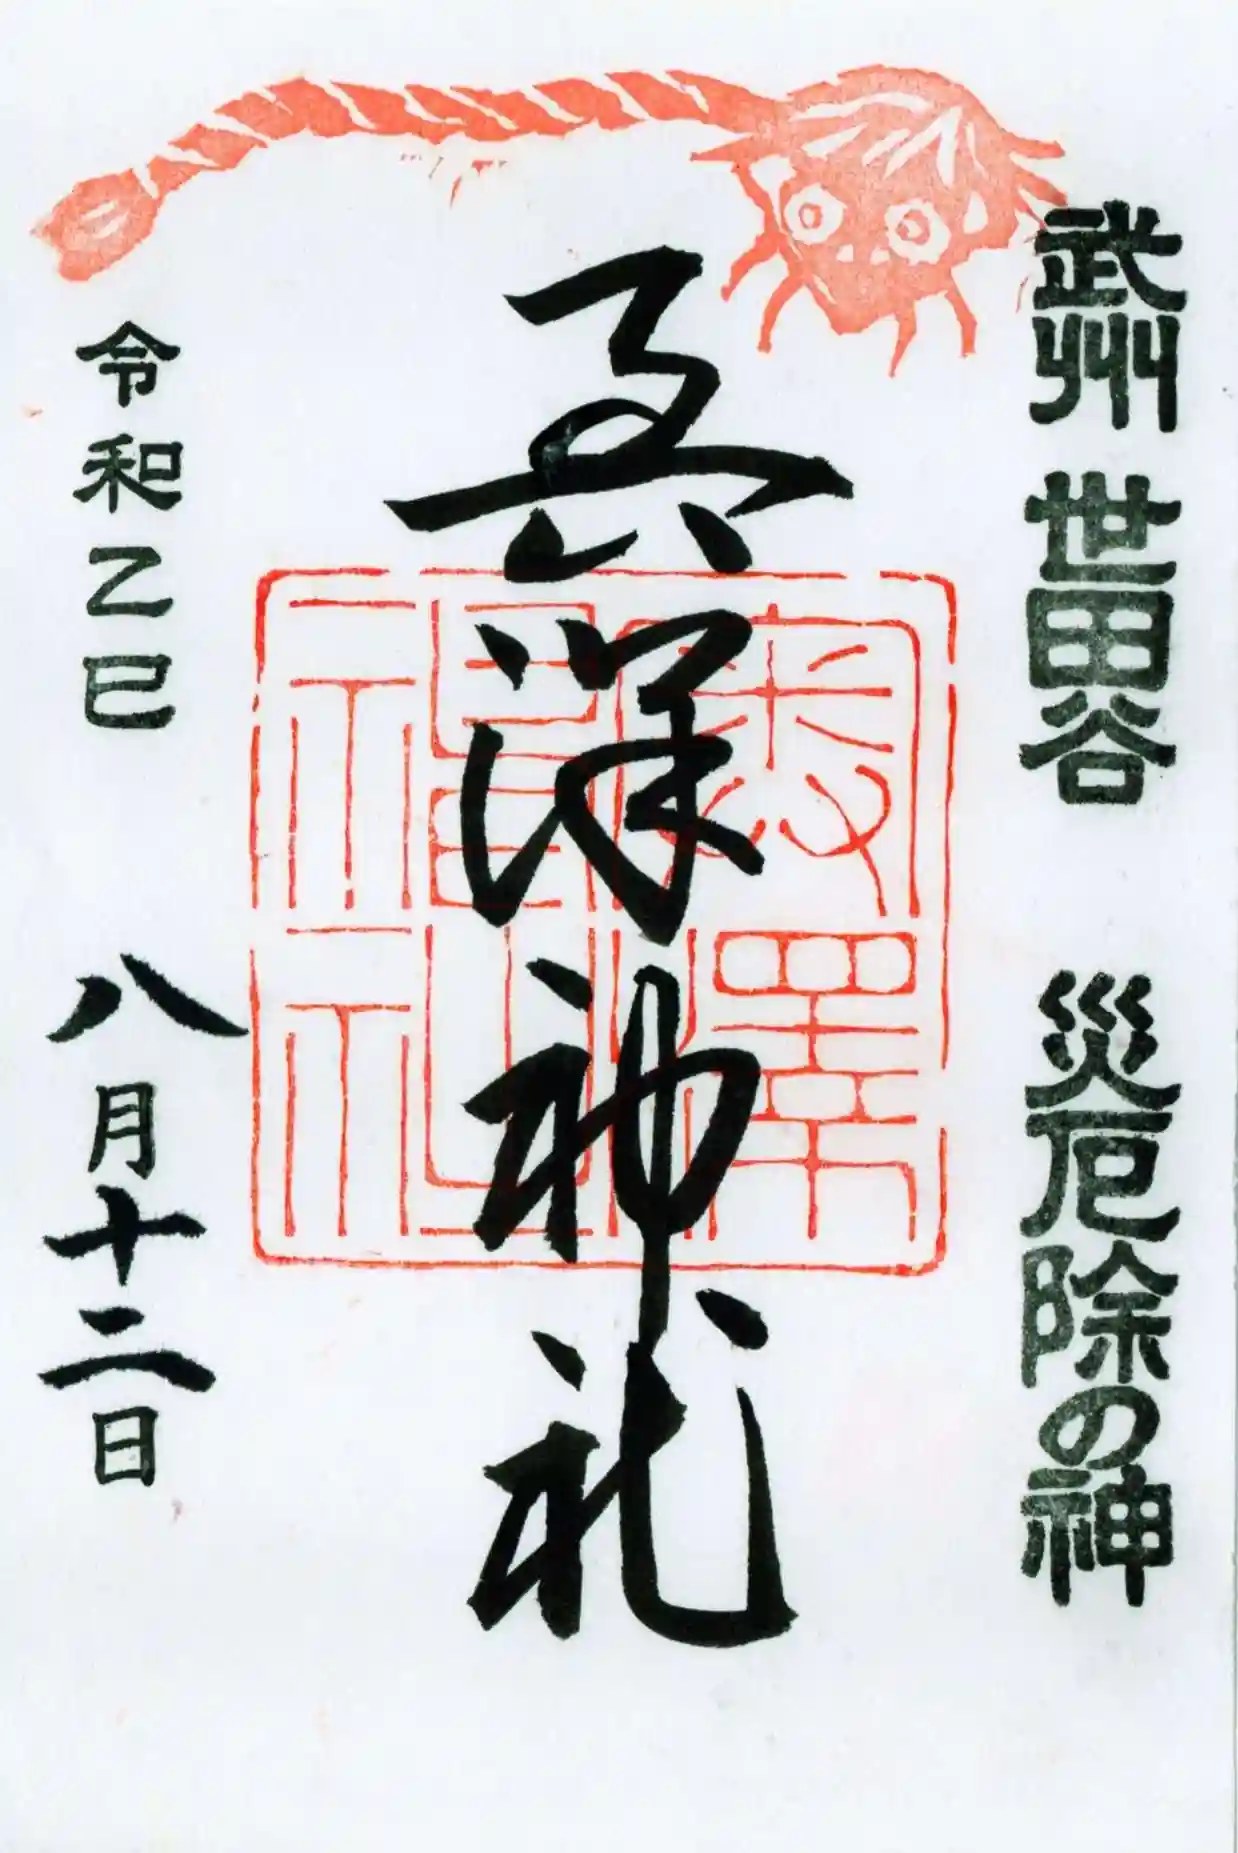 武州 世田谷 災厄除の神
奥澤神社
令和乙巳 八月十二日